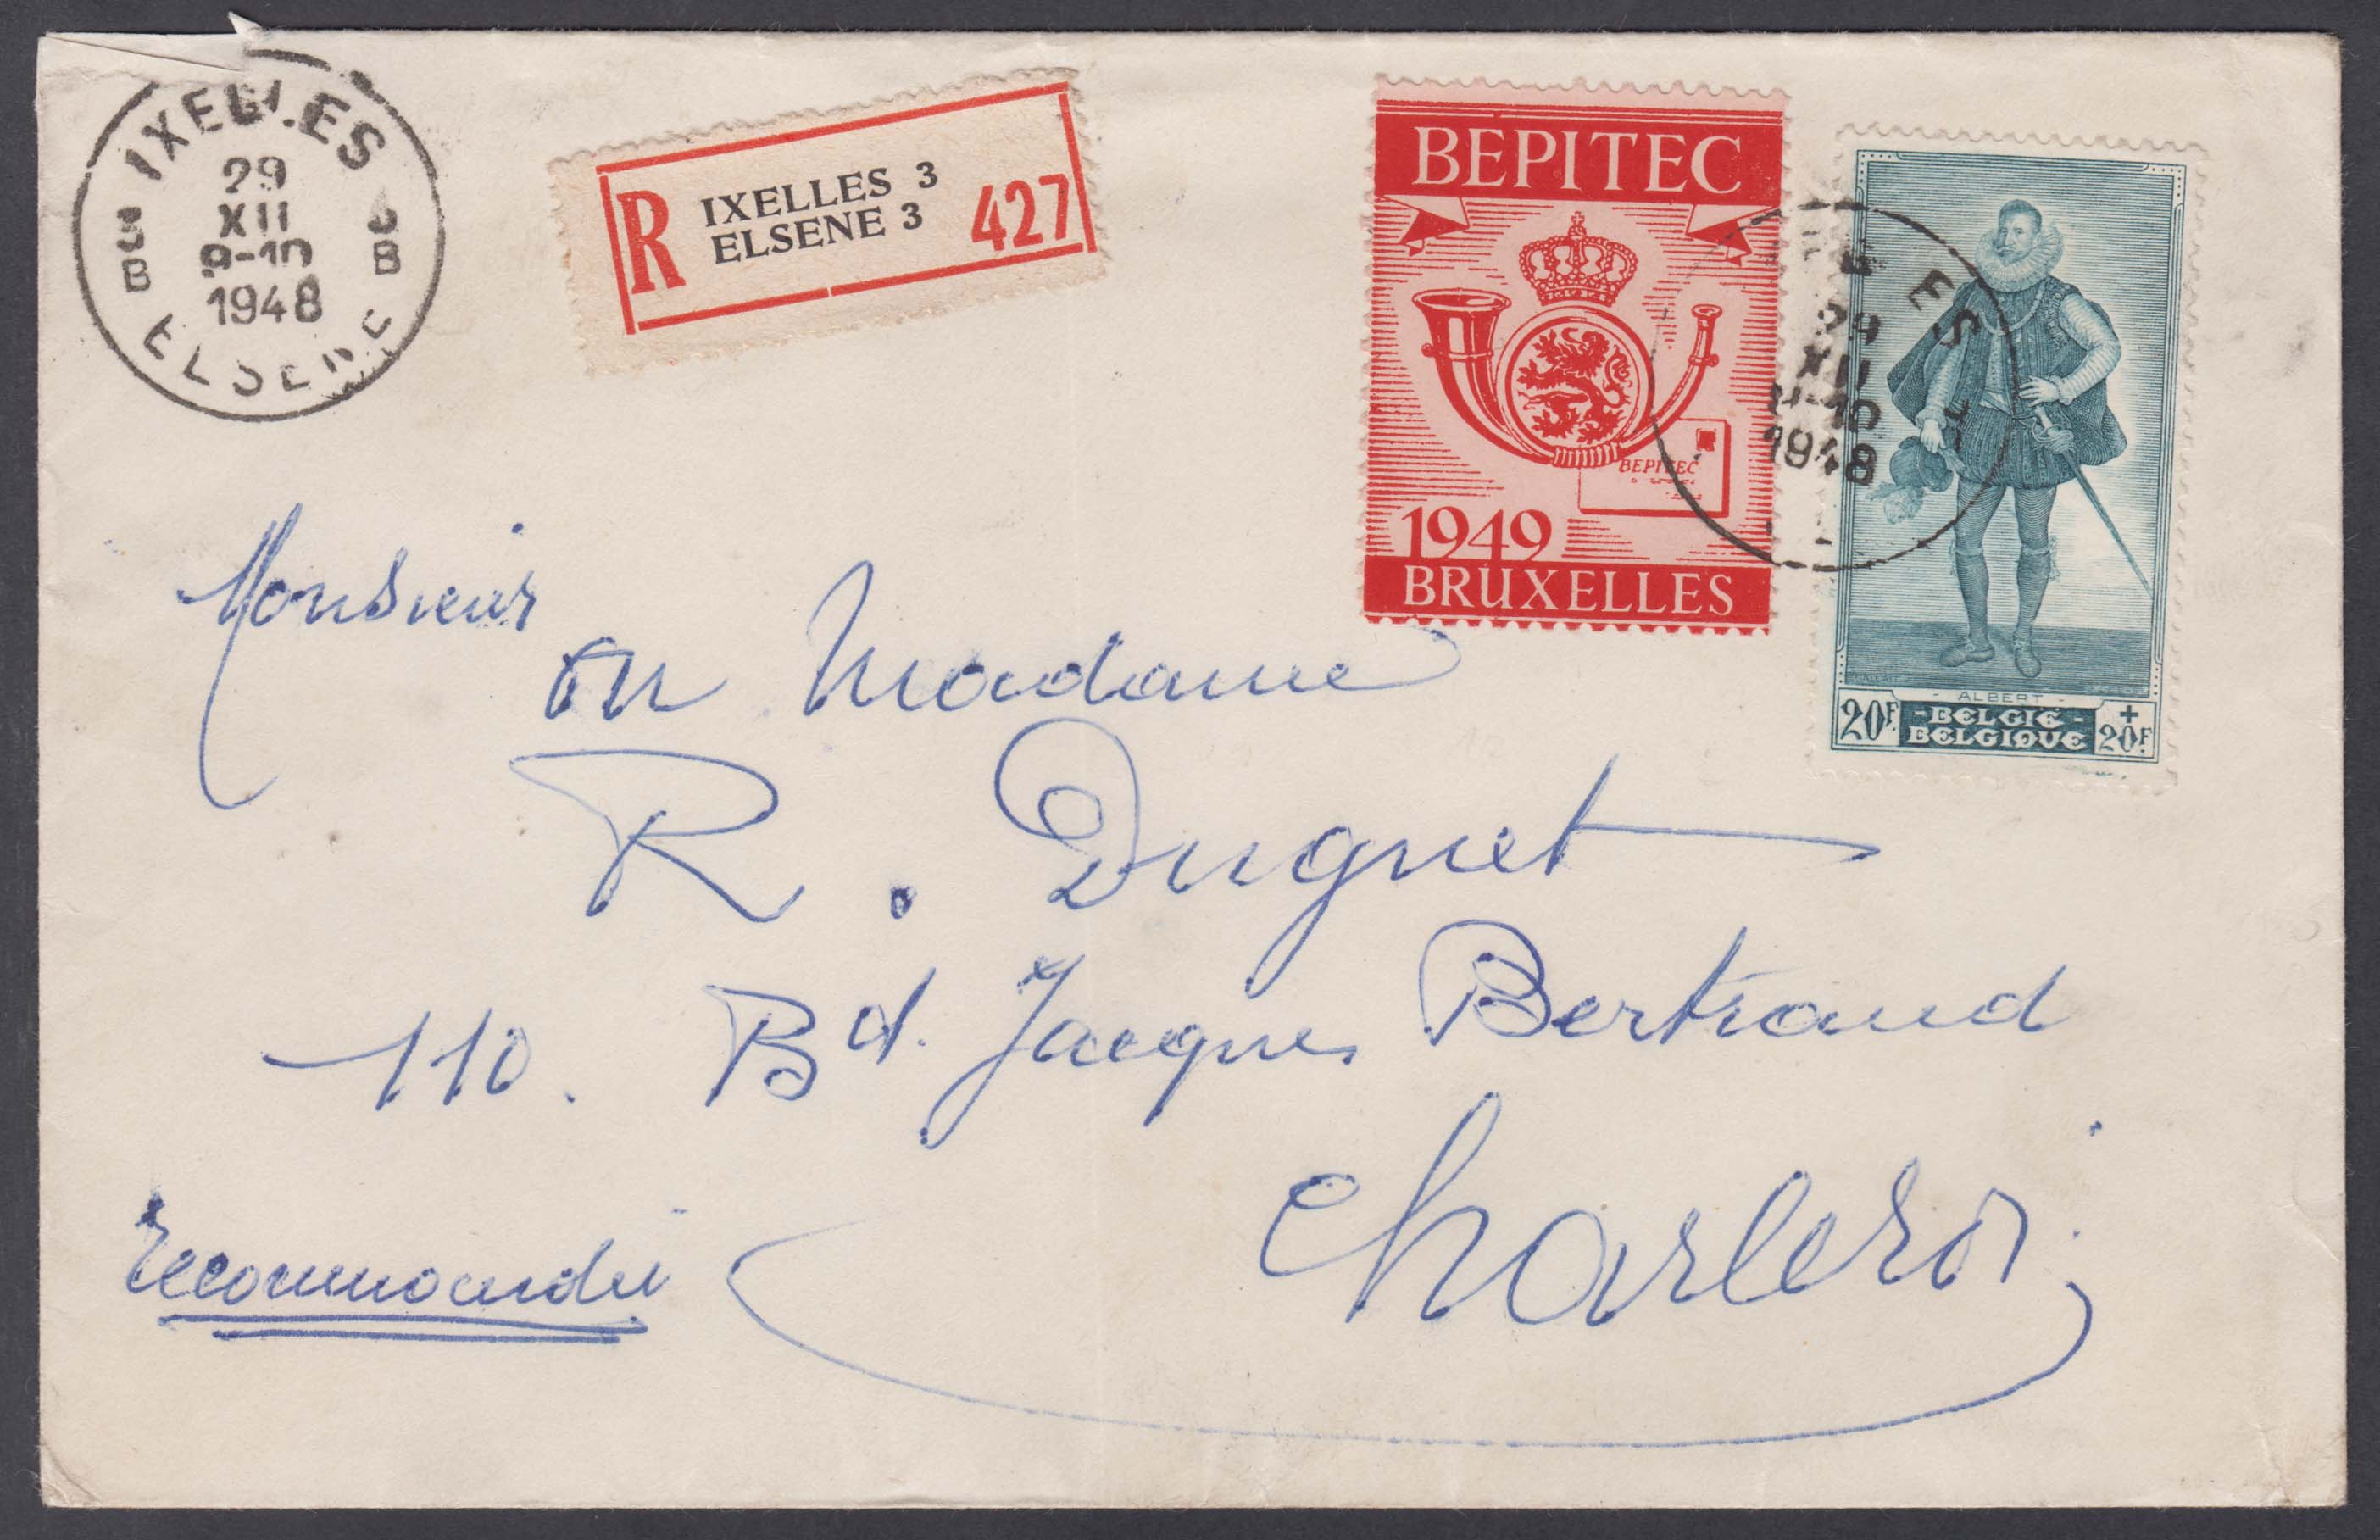 IXELLES
29
XII
9-10
1948
3 B
3 B
ELSENE
R
IXELLES 3
ELSENE 3
427
BEPITEC
BEPITEC
1949
BRUXELLES
29
XII
9-10
1948
- ALBERT -
20F
- BELGIË -
BELGIQUE
+
20F
Monsieur
ou Madame
R. Duquet
110. Bd. Jacques Bertrand
Charleroi
Recommandé